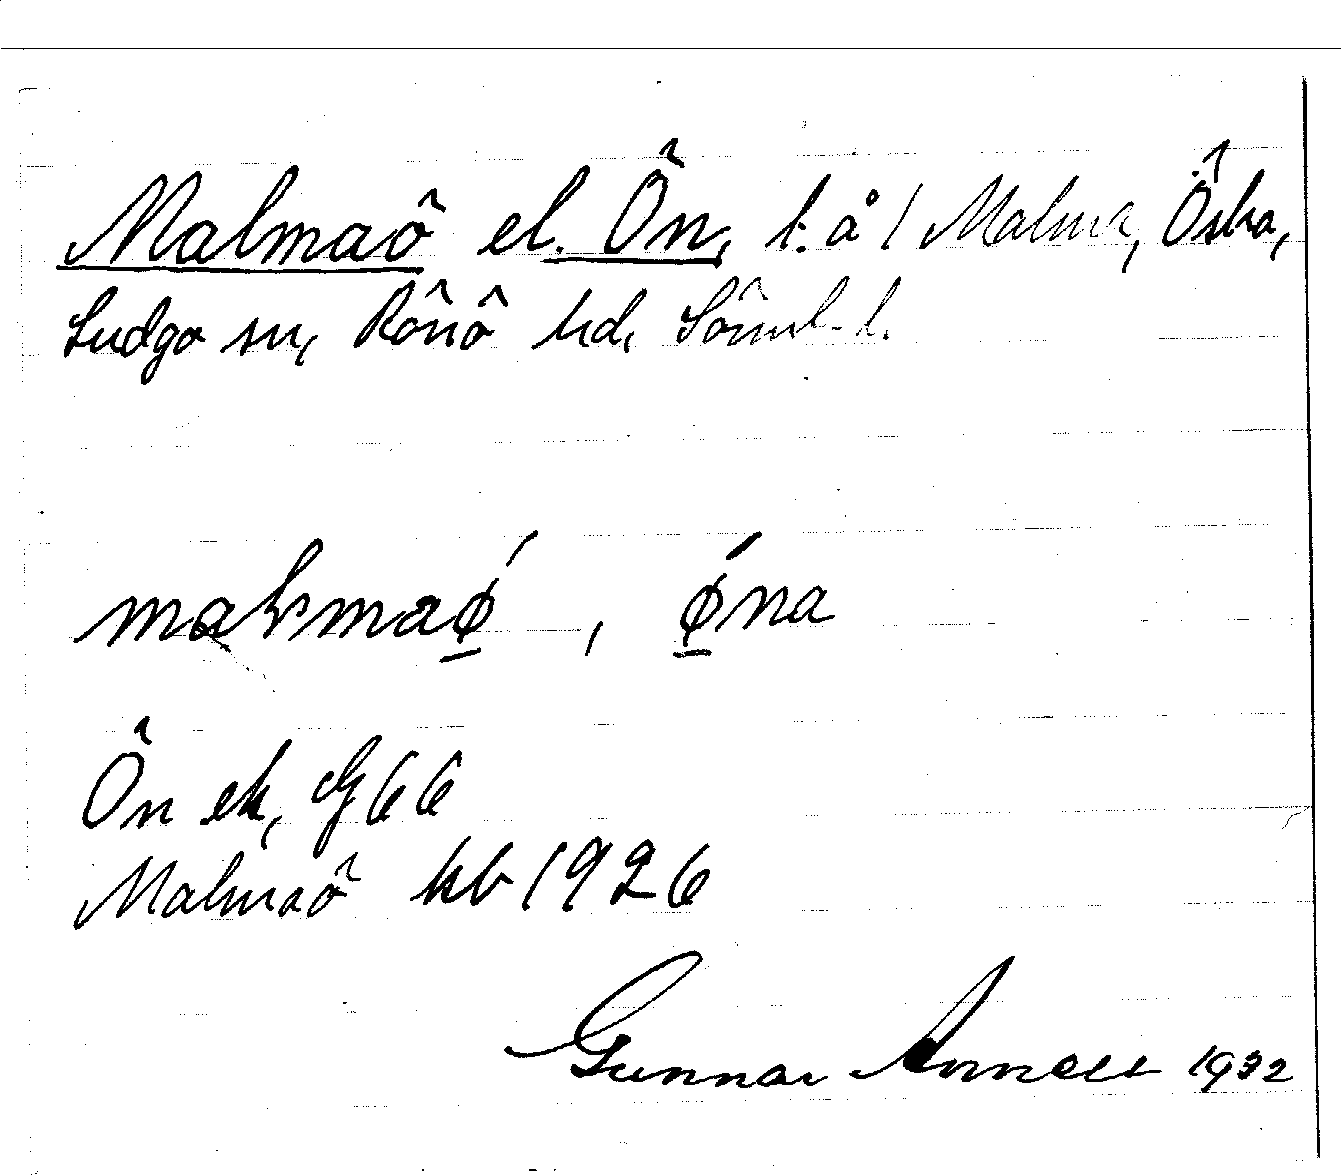 Malmaö el. Ön, t. å 1 Malma, Östra,
Ludgo sn, Rönö hd, Söderml. l.
malmaǿ, ǿna
Ön ek, G66
Malmaö kb 1926
Gunnar Annell 1932